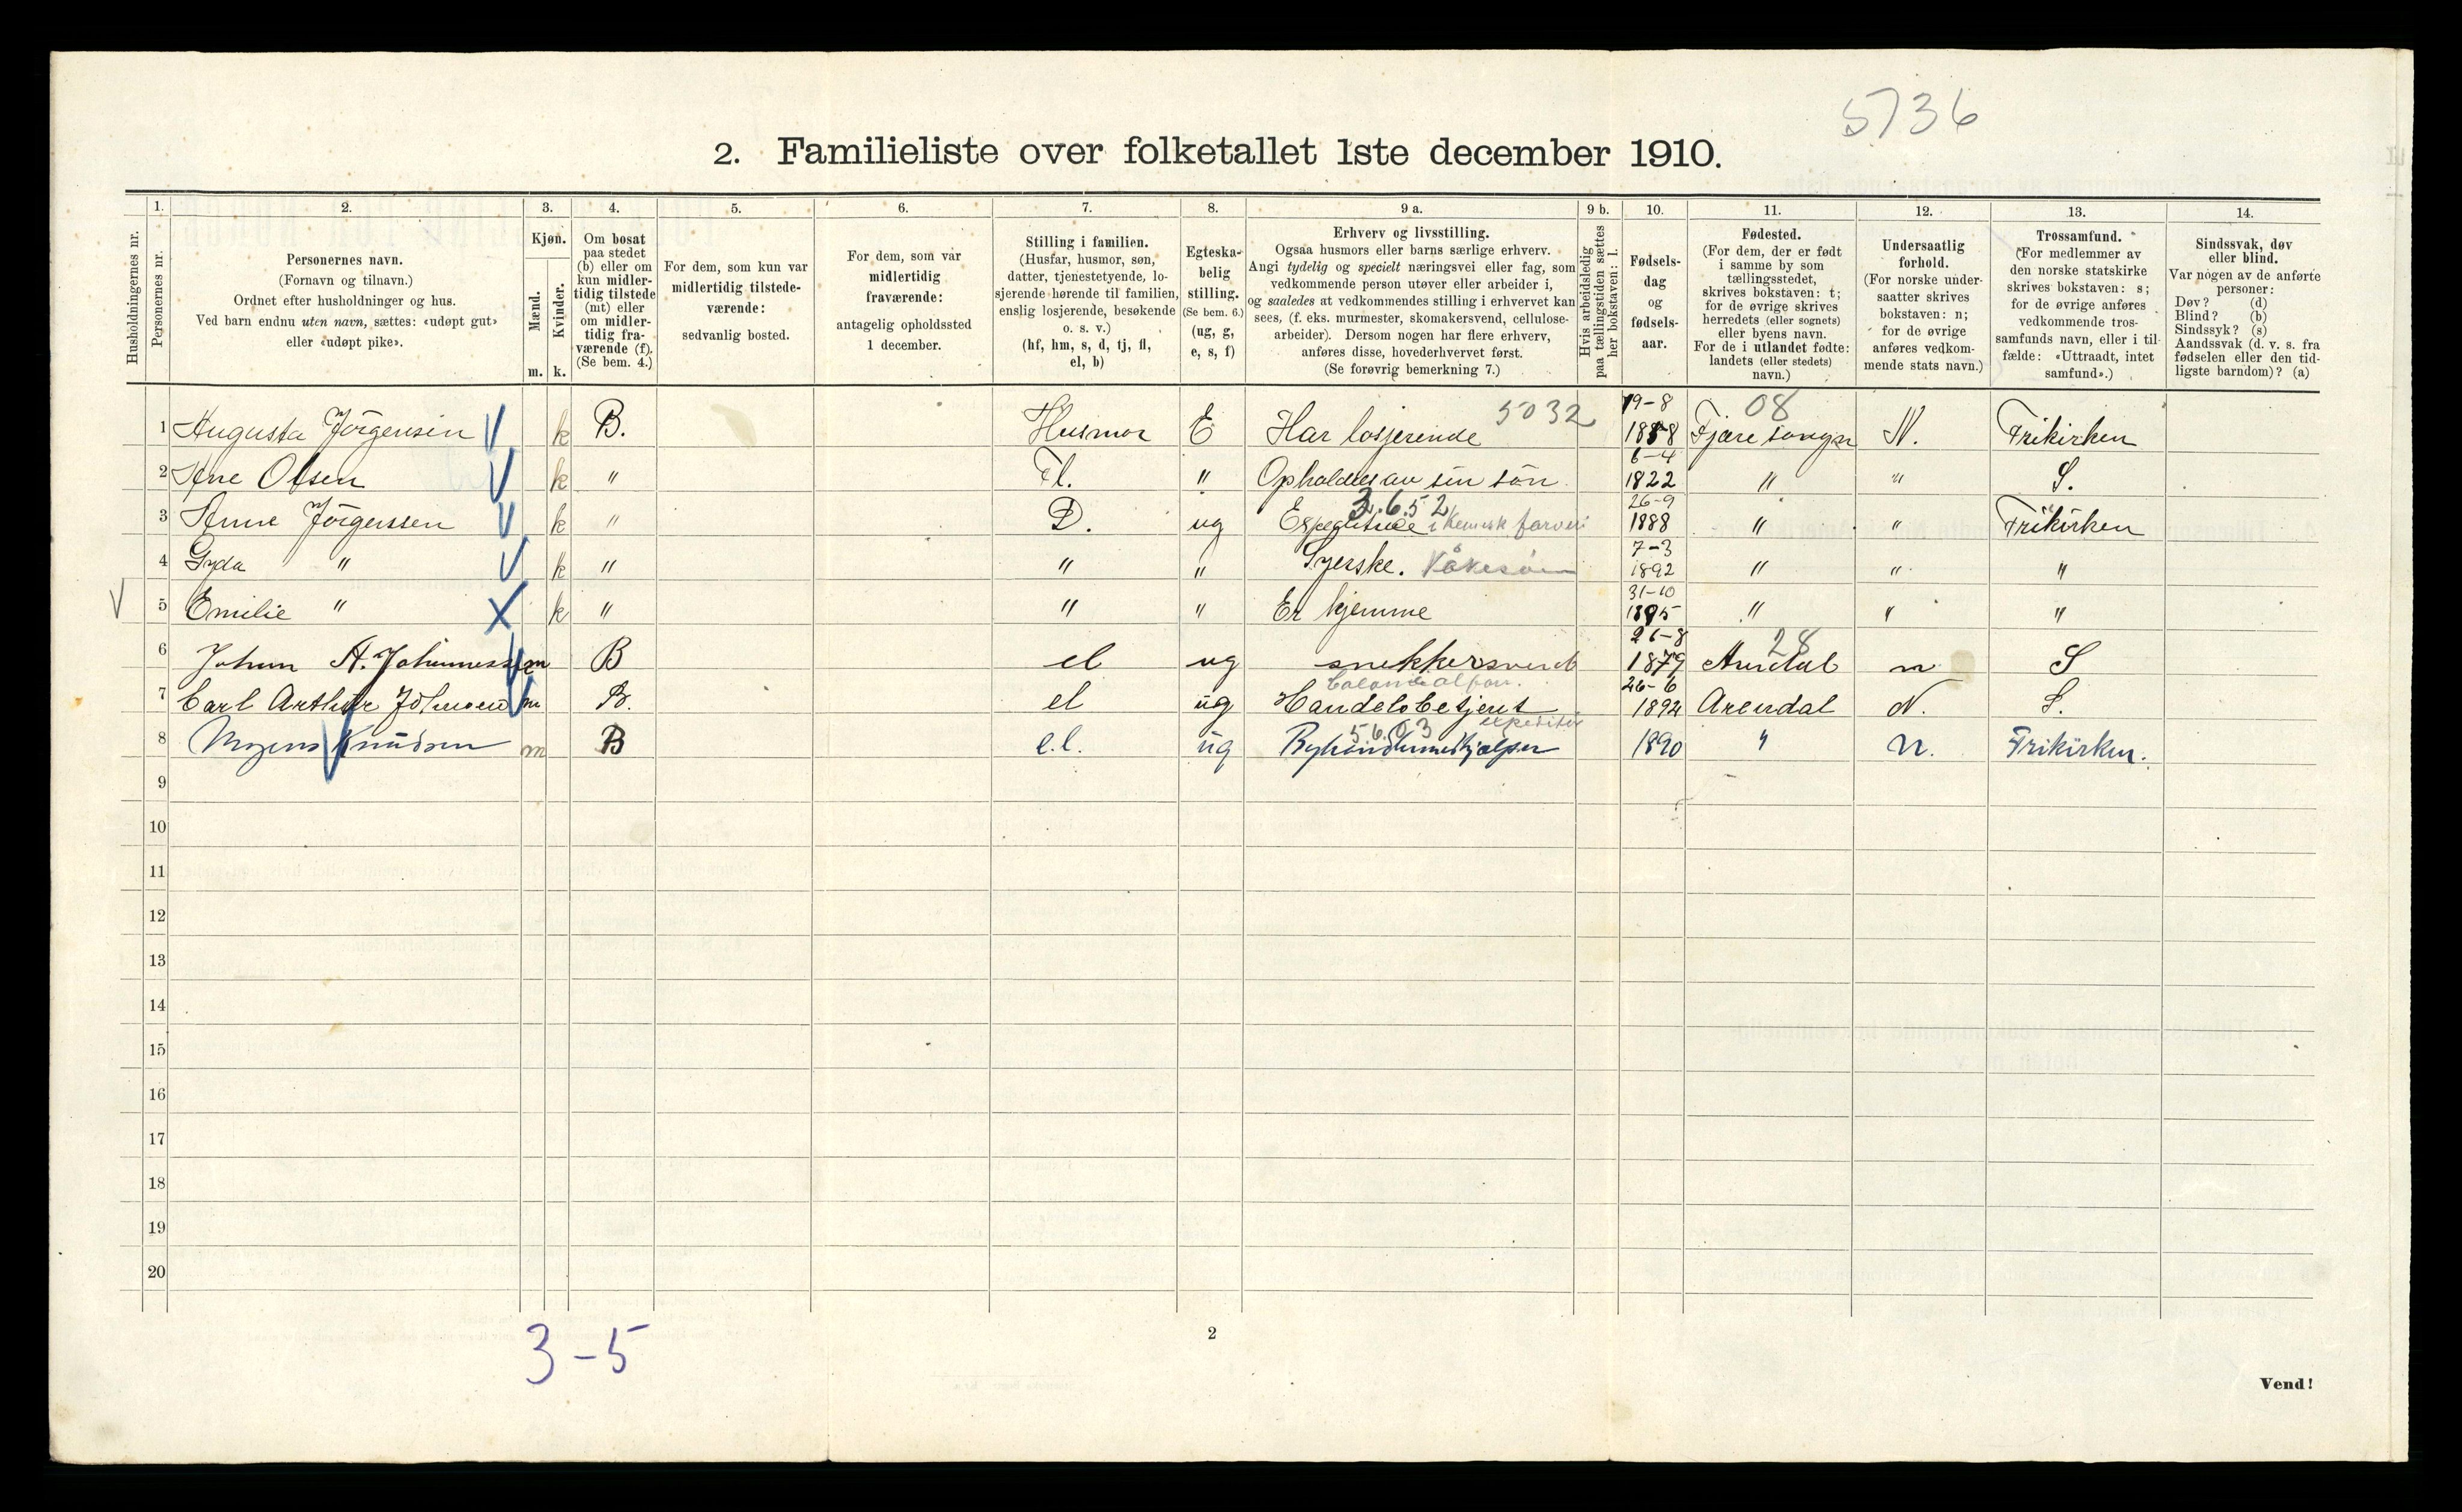 5736
2. Familieliste over folketallet 1ste december 1910.
1. 2. 3. 4. 5. 6. 7. 8. 9 a. 9 b. 10. 11. 12. 13. 14.
Husholdningernes nr.
Personernes nr.
Personernes navn.
(Fornavn og tilnavn.)
Ordnet efter husholdninger og hus.
Ved barn endnu uten navn, sættes: «udøpt gut»
eller «udøpt pike».
Kjøn.
Mænd.
Kvinder.
m. k.
Om bosat
paa stedet
(b) eller om
kun midler-
tidig tilstede
(mt) eller
om midler-
tidig fra-
værende (f).
(Se bem. 4.)
For dem, som kun var
midlertidig tilstede-
værende:
sedvanlig bosted.
For dem, som var
midlertidig
fraværende:
antagelig opholdssted
1 december.
Stilling i familien.
(Husfar, husmor, søn,
datter, tjenestetyende, lo-
sjerende hørende til familien,
enslig losjerende, besøkende
o. s. v.)
(hf, hm, s, d, tj, fl,
el, b)
Egteska-
belig
stilling.
(Se bem. 6.)
(ug, g,
e, s, f)
Erhverv og livsstilling.
Ogsaa husmors eller barns særlige erhverv.
Angi tydelig og specielt næringsvei eller fag, som
vedkommende person utøver eller arbeider i,
og saaledes at vedkommendes stilling i erhvervet kan
sees, (f. eks. murmester, skomakersvend, cellulose-
arbeider). Dersom nogen har flere erhverv,
anføres disse, hovederhvervet først.
(Se forøvrig bemerkning 7.)
Hvis arbeidsledig
paa tællingstiden sættes
her bokstaven: l.
Fødsels-
dag
og
fødsels-
aar.
Fødested.
(For dem, der er født
i samme by som
tællingsstedet,
skrives bokstaven: t;
for de øvrige skrives
herredets (eller sognets)
eller byens navn.
For de i utlandet fødte:
landets (eller stedets)
navn.)
Undersaatlig
forhold.
(For norske under-
saatter skrives
bokstaven: n;
for de øvrige
anføres vedkom-
mende stats navn.)
Trossamfund.
(For medlemmer av
den norske statskirke
skrives bokstaven: s;
for de øvrige anføres
vedkommende tros-
samfunds navn, eller i til-
fælde: «Uttraadt, intet
samfund».)
Sindssvak, døv
eller blind.
Var nogen av de anførte
personer:
Døv? (d)
Blind? (b)
Sindssyk? (s)
Aandssvak (d. v. s. fra
fødselen eller den tid-
ligste barndom)? (a)
1 Augusta Jörgensen k B. Husmor E Har losjerende 5032 19-8 1858 Fjære songn 08 N. Frikirken
2 Ane Olsen k " Fl. " Opholdes av sin sön 6-4 1822 " " S.
3 Anne Jörgenssen k " D. ug Expeditrice i Kemisk farveri 3.6.52 26-9 1888 " " Frikirken
4 Gyda " k " " " Syerske. 7-3 1892 " " "
5 Emilie " k " " " Er hjemme 31-10 1895 " " "
6 Johan A. Johannessen m B el ug snekkersvend 26-8 1879 Arendal 28 n S
7 Carl Arthur Johnsen m B. el ug Handelsbetjent 26-6 1892 Arendal N. S.
8 Mogens Knudsen m B e.l. ug 5603 expeditør 1890 " N. Frikirken.
9
10
11
12
13
14
15
16
17
18
19
20
3-5
2
Vend!